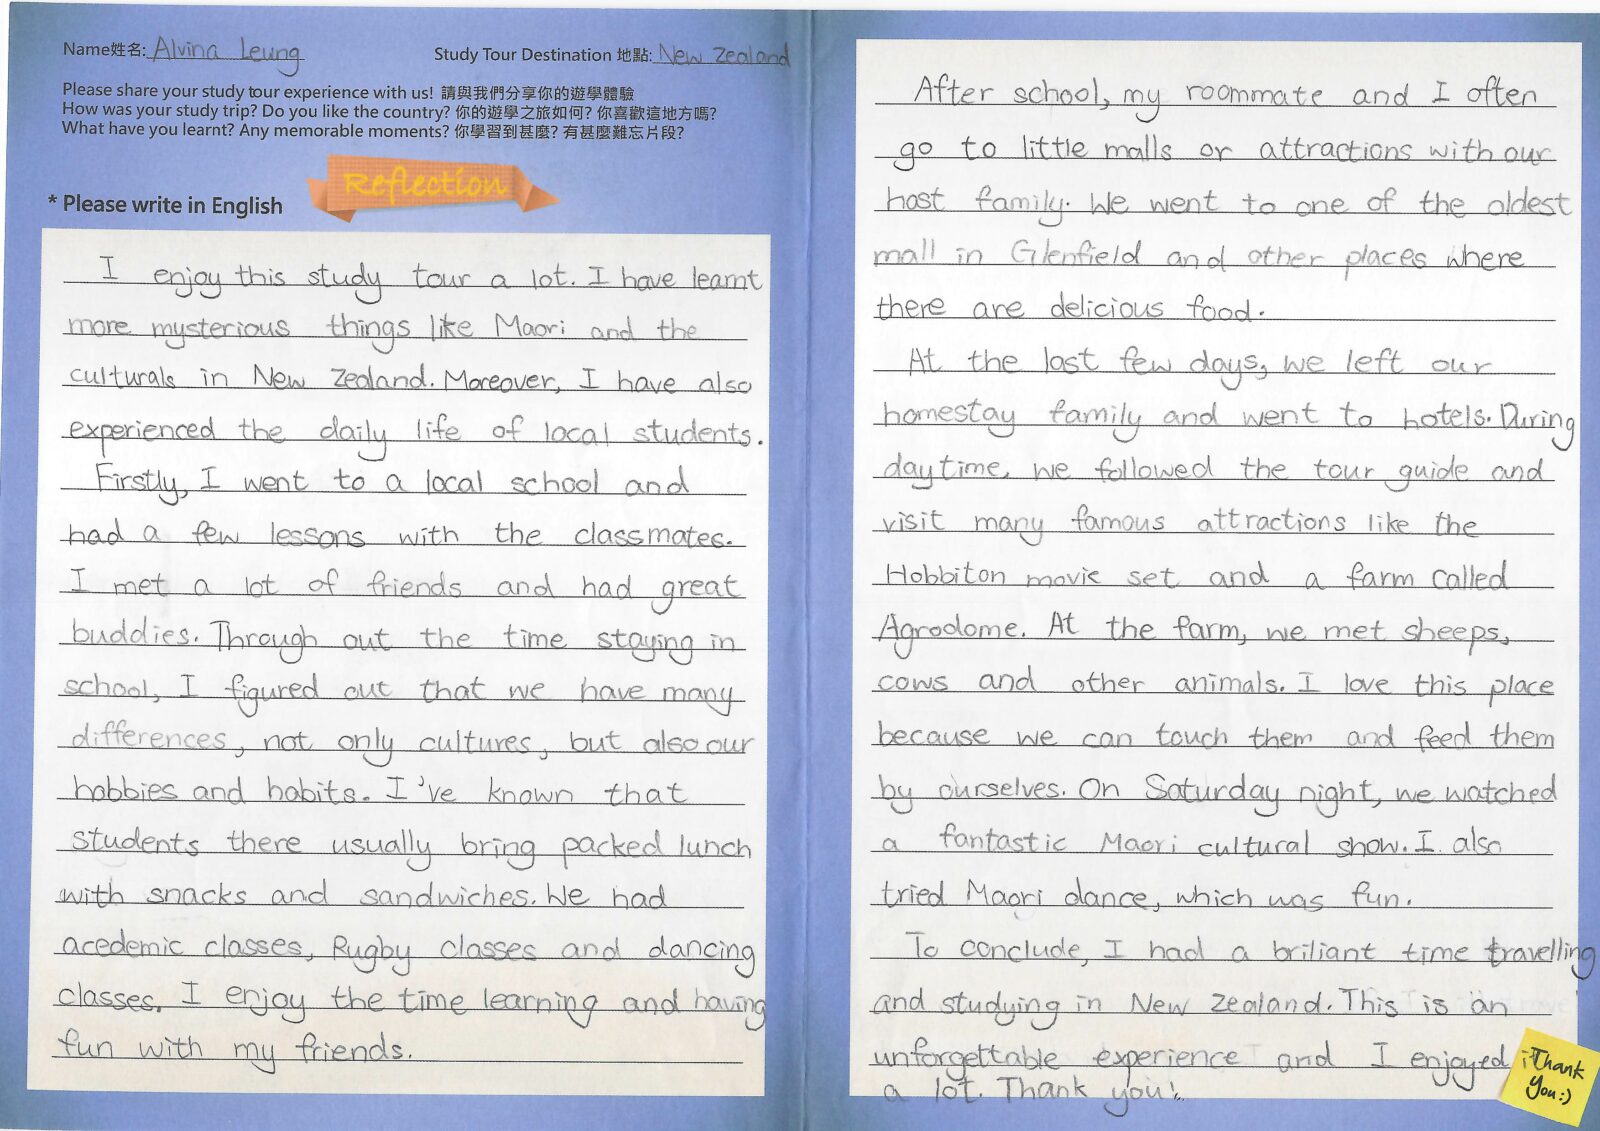 Name姓名: Alvina Leung
Study Tour Destination 地點: New Zealand
Please share your study tour experience with us! 請與我們分享你的遊學體驗
How was your study trip? Do you like the country? 你的遊學之旅如何? 你喜歡這地方嗎?
What have you learnt? Any memorable moments? 你學習到甚麼? 有甚麼難忘片段?
Reflection
* Please write in English
I enjoy this study tour a lot. I have learnt
more mysterious things like Maori and the
culturals in New Zealand. Moreover, I have also
experienced the daily life of local students.
Firstly, I went to a local school and
had a few lessons with the classmates.
I met a lot of friends and had great
buddies. Through out the time staying in
school, I figured out that we have many
differences, not only cultures, but also our
hobbies and habits. I've known that
students there usually bring packed lunch
with snacks and sandwiches. We had
acedemic classes, Rugby classes and dancing
classes. I enjoy the time learning and having
fun with my friends.
After school, my roommate and I often
go to little malls or attractions with our
host family. We went to one of the oldest
mall in Glenfield and other places where
there are delicious food.
At the last few days, we left our
homestay family and went to hotels. During
daytime, we followed the tour guide and
visit many famous attractions like the
Hobbiton movie set and a farm called
Agrodome. At the farm, we met sheeps,
cows and other animals. I love this place
because we can touch them and feed them
by ourselves. On Saturday night, we watched
a fantastic Maori cultural show. I also
tried Maori dance, which was fun.
To conclude, I had a briliant time travelling
and studying in New Zealand. This is an
unforgettable experience and I enjoyed it
a lot. Thank you!
Thank
You:)